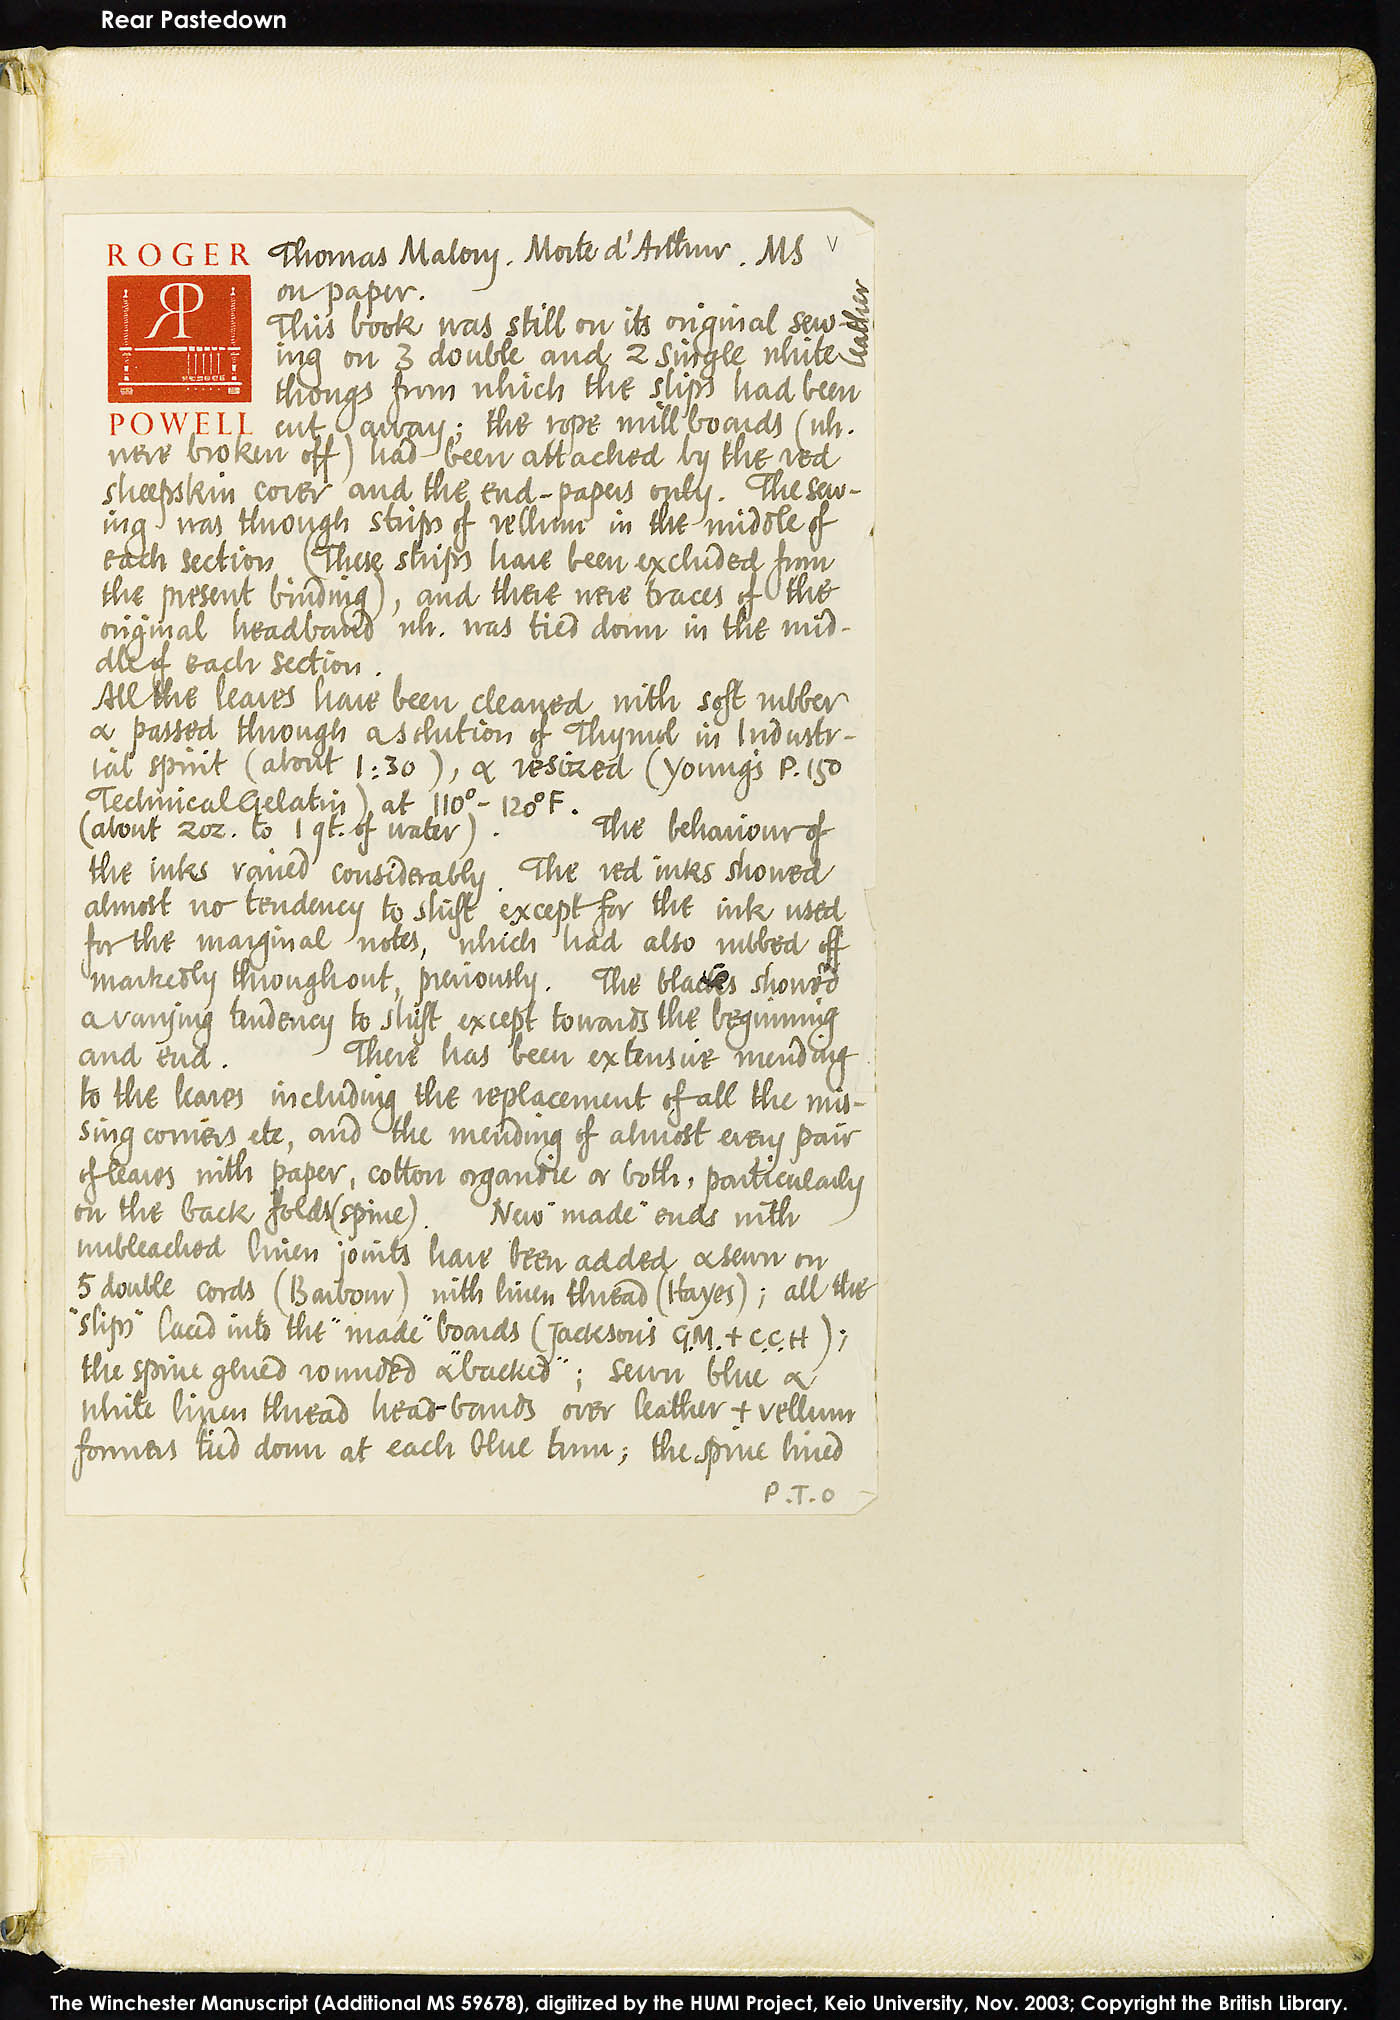 Rear Pastedown
ROGER
POWELL
Thomas Malory. Morte d'Arthur. MS
on paper.
This book was still on its original sew-
ing on 3 double and 2 single white leather
thongs from which the slips had been
cut away; the rope millboards (wh.
were broken off) had been attached by the red
sheepskin cover and the end-papers only. The sew-
ing was through strips of vellum in the middle of
each section (These strips have been excluded from
the present binding), and there were traces of the
original headband wh. was tied down in the mid-
dle of each section.
All the leaves have been cleaned with soft rubber
& passed through a solution of Thymol in Industr-
ial spirit (about 1:30), & resized (Young's P.150
Technical Gelatin) at 110°-120°F.
(about 2oz. to 1 qt. of water). The behaviour of
the inks varied considerably. The red inks showed
almost no tendency to shift except for the ink used
for the marginal notes, which had also rubbed off
markedly throughout, previously. The blacks showed
a varying tendency to shift except towards the beginning
and end. There has been extensive mending
to the leaves including the replacement of all the mis-
sing corners etc, and the mending of almost every pair
of leaves with paper, cotton organdie or both, particularly
on the back folds (spine). New "made" ends with
unbleached linen joints have been added & sewn on
5 double cords (Barbour) with linen thread (Hayes); all the
"slips" laced into the "made" boards (Jackson's G.M. + C.C.H);
the spine glued rounded & "backed"; sewn blue &
white linen thread head-bands over leather + vellum
formers tied down at each blue turn; the spine lined
P.T.O
The Winchester Manuscript (Additional MS 59678), digitized by the HUMI Project, Keio University, Nov. 2003; Copyright the British Library.